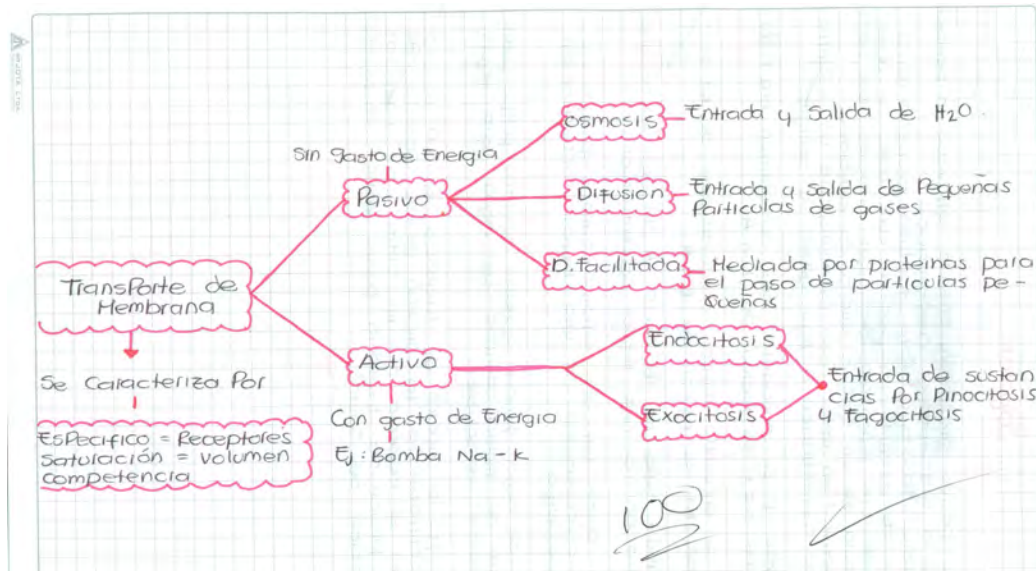 Transporte de
Membrana
Se Caracteriza Por
Específico = Receptores
Saturación = volumen
competencia
Sin Gasto de Energia
Pasivo
osmosis
Entrada y Salida de H2O.
Difusion
Entrada y Salida de Pequeñas
Particulas de gases
D. Facilitada
Mediada por proteinas para
el paso de particulas pe-
queñas
Activo
Con gasto de Energia
Ej: Bomba Na-k
Endocitosis
Exocitosis
Entrada de sustan
cias Por Pinocitosis
y Fagocitosis
100